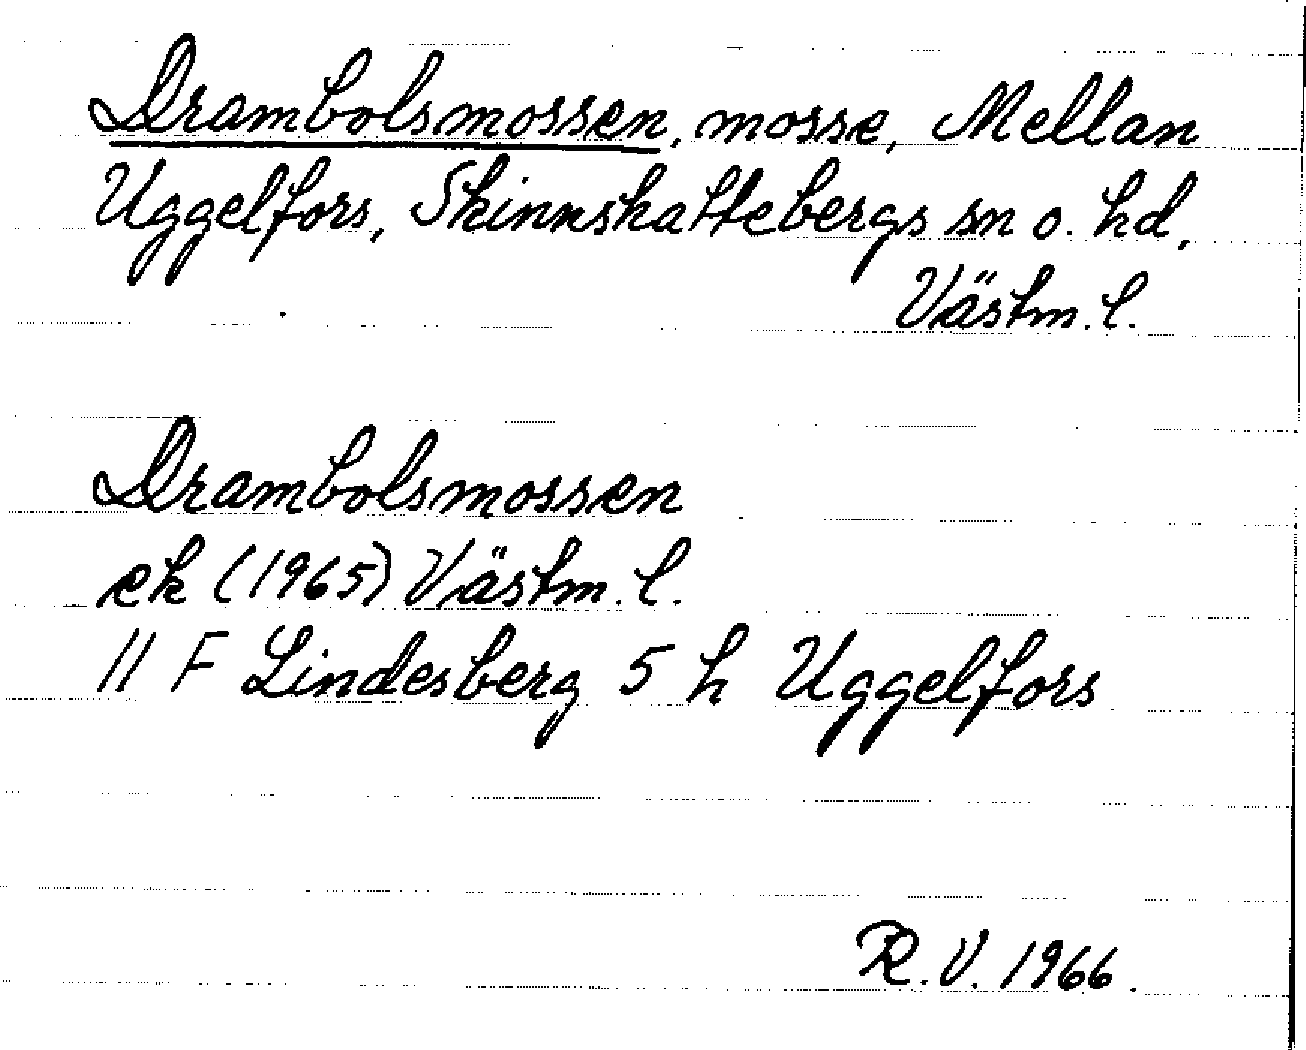 Drambolsmossen, mosse, Mellan
Uggelfors, Skinnskattebergs sn o. hd,
Västm. l.
Drambolsmossen
ek (1965) Västm. l.
11 F Lindesberg 5 h Uggelfors
R.V. 1966.